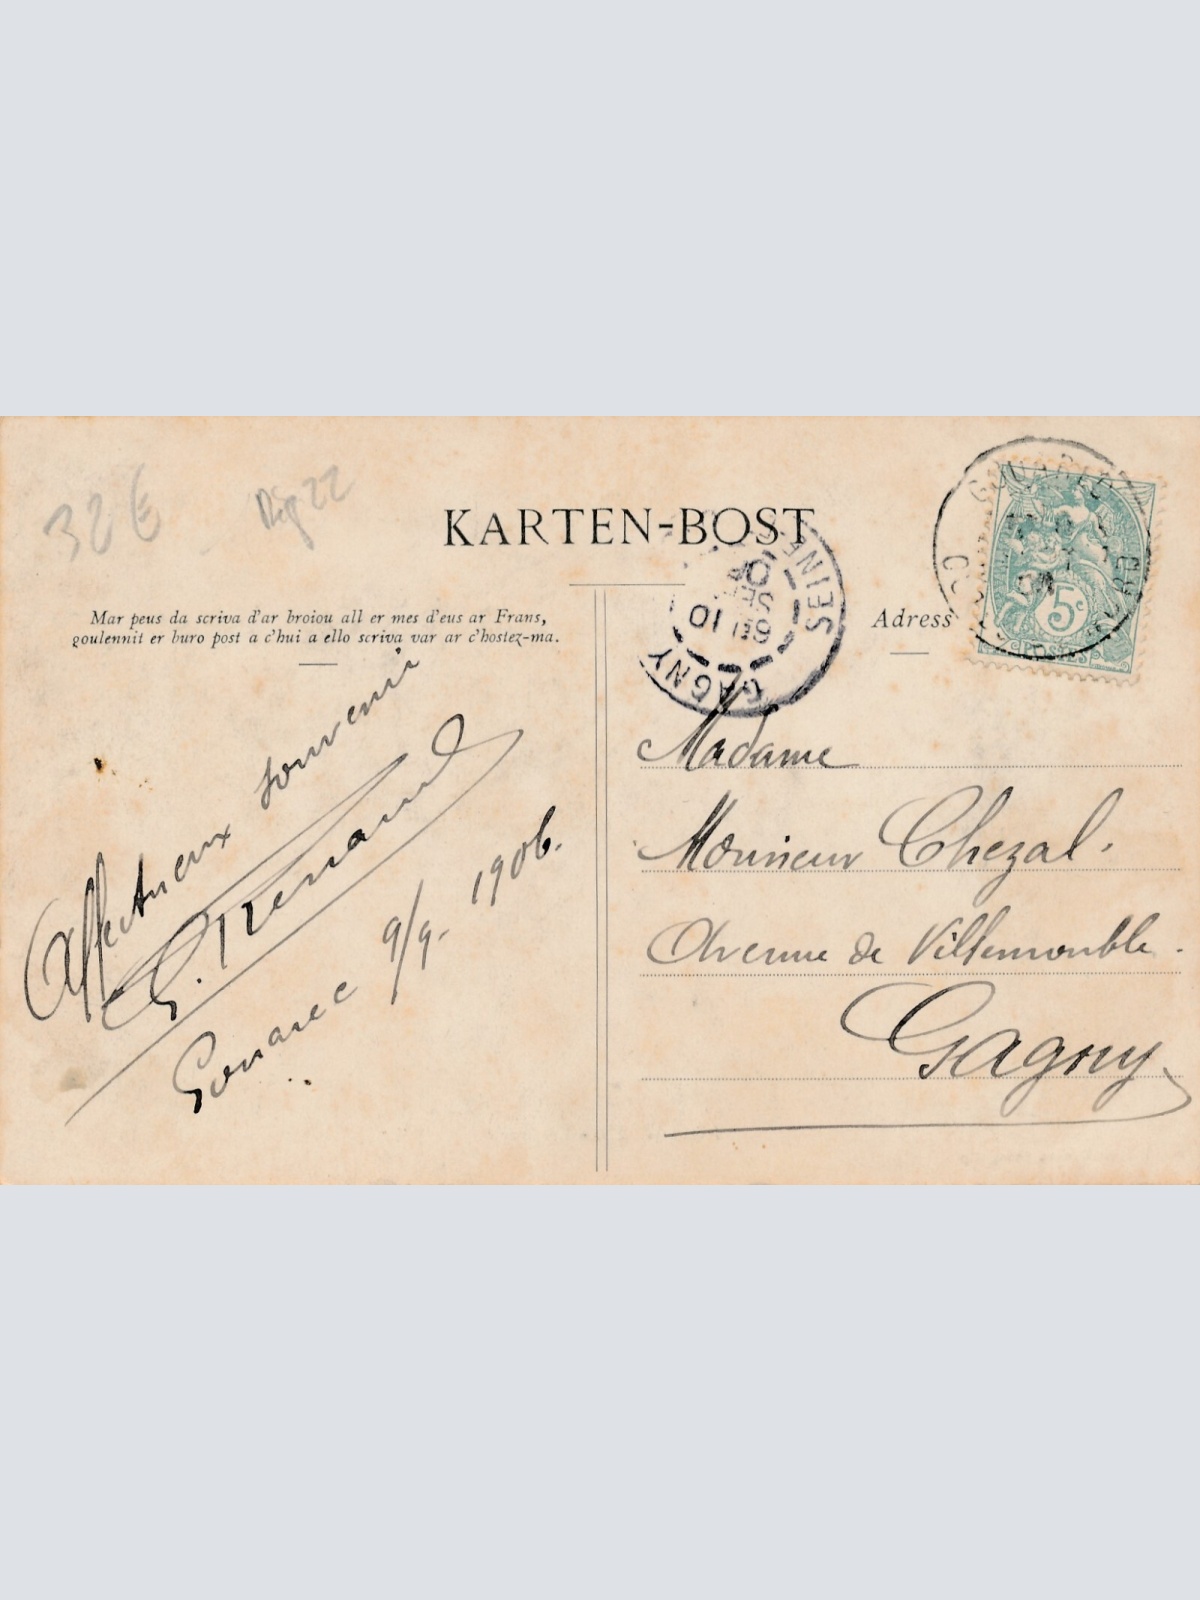 32€
Rig 22
KARTEN-BOST
Mar peus da scriva d'ar broiou all er mes d'eus ar Frans,
goulennit er buro post a c'hui a ello scriva var ar c'hostez-ma.
Adress
GOUAREC
5c
POSTES
GAGNY
SEINE
6E 10
SEPT
Affectueux souvenir
Gouarec 9/9. 1906.
Madame
Monsieur Chezal.
Avenue de Villemomble.
Gagny